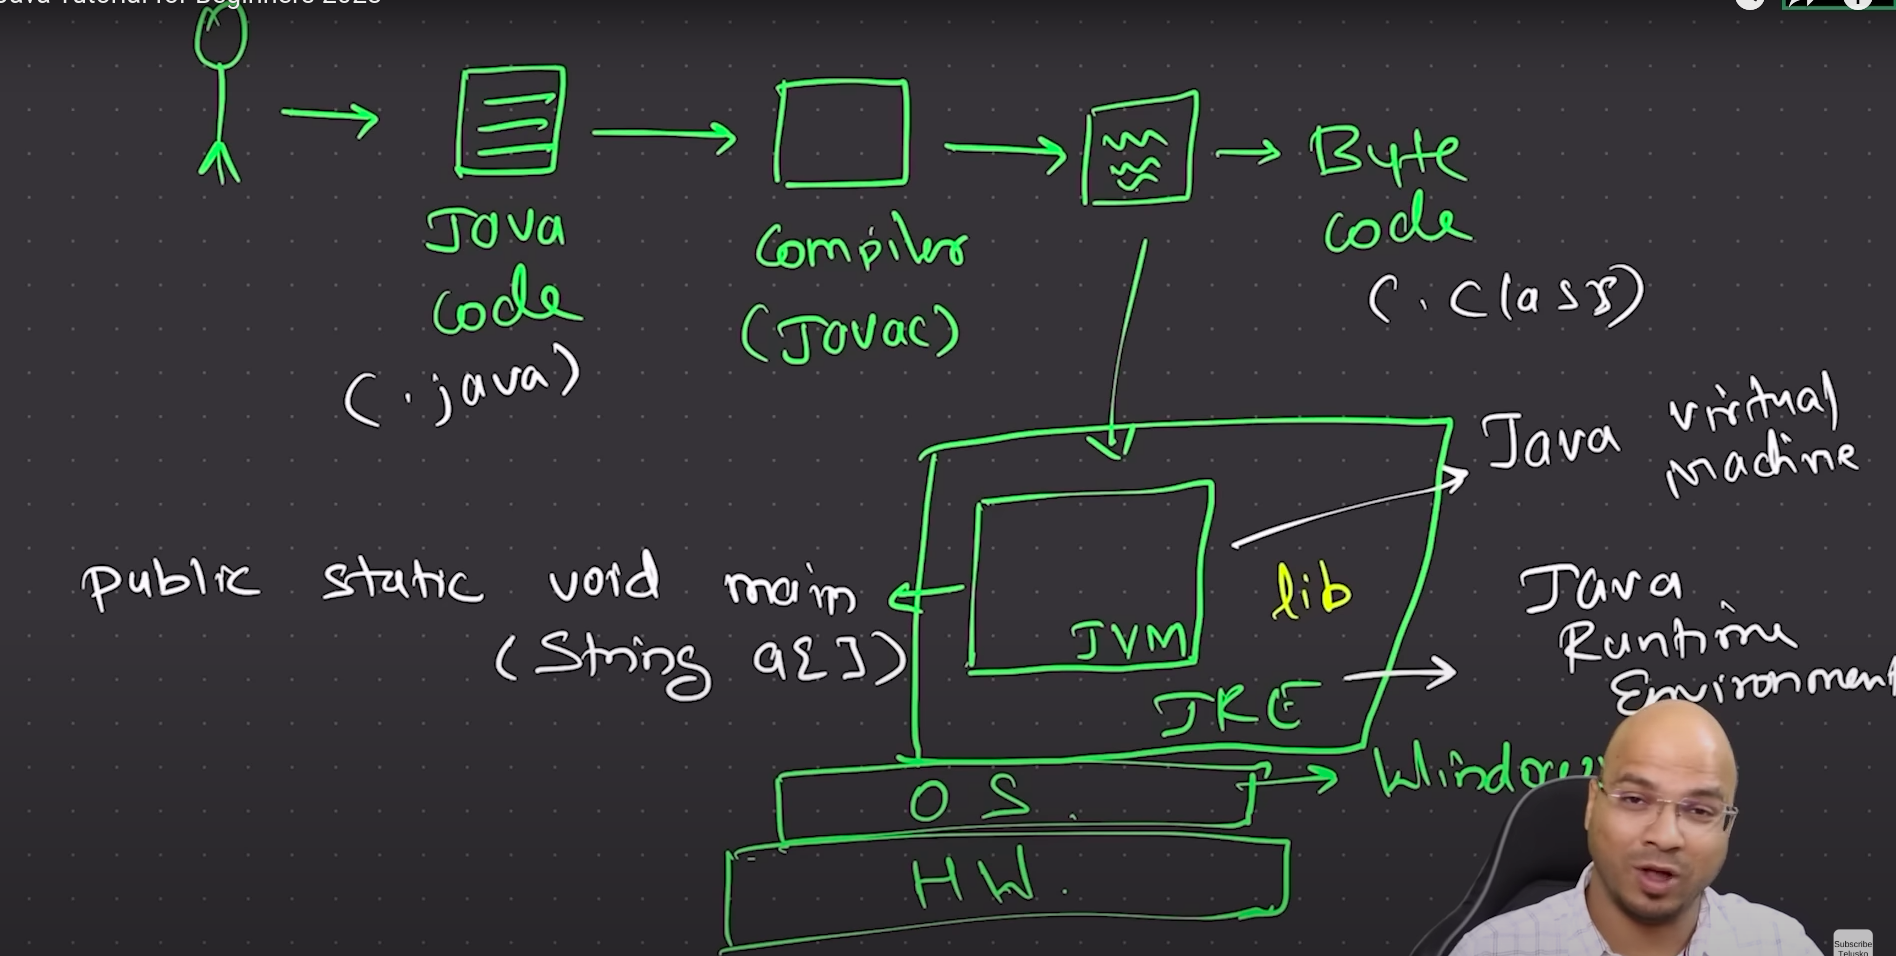 Java Tutorial for Beginners 2023
Java
code
(.java)
Compiler
(Javac)
Byte
code
(.class)
Java virtual
machine
public static void main
(String a[])
JVM
lib
JRE
Java
Runtime
Environment
OS.
HW.
Subscribe
Telusko